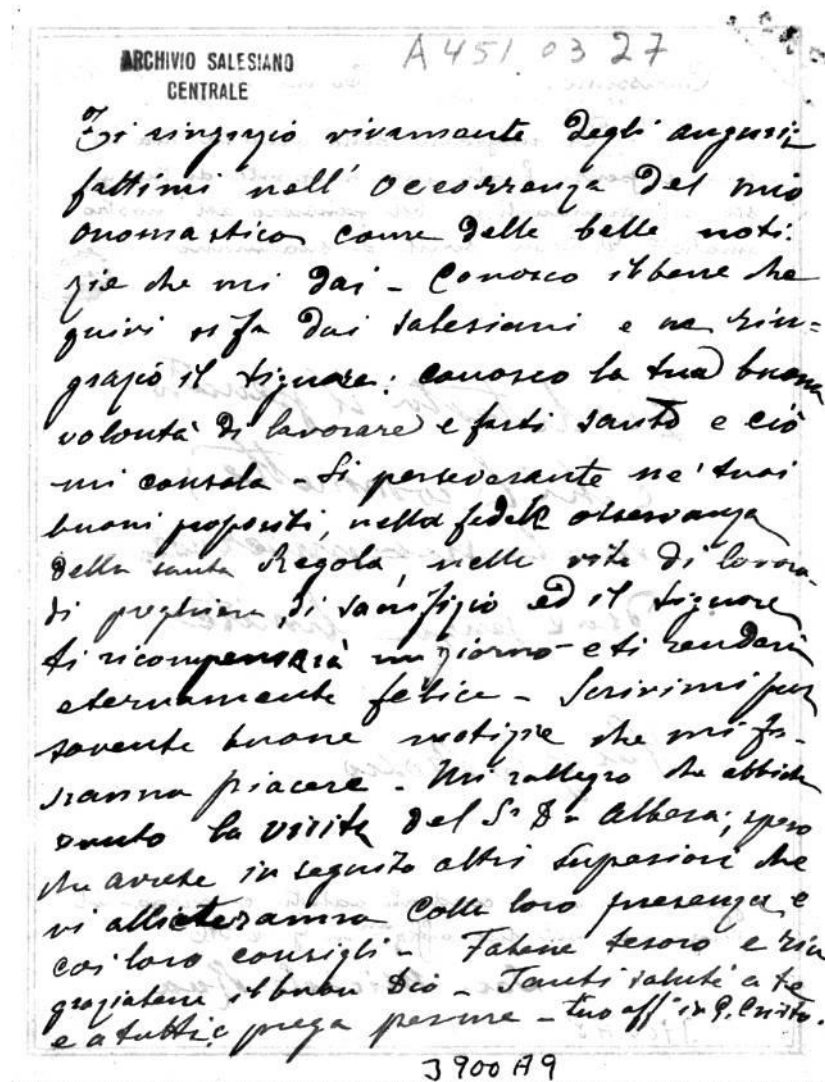 ARCHIVIO SALESIANO
CENTRALE
A 451 03 27
Ti ringrazio vivamente degli auguri
fattimi nell' occorrenza del mio
onomastico come delle belle noti:
zie che mi dai - Conosco il bene che
quivi si fa dai salesiani e ne rin=
grazio il Signore: conosco la tua buona
volontà di lavorare e farti santo e ciò
mi consola - Sii perseverante ne' tuoi
buoni propositi, nella fedele osservanza
della santa Regola, nelle vita di lavoro
di preghiera, di sacrifizio ed il Signore
ti ricompenserà un giorno e ti renderà
eternamente felice - Scrivimi pur
sovente buone notizie che mi fa-
ranno piacere - Mi rallegro che abbiate
avuto la visita del Sr D. Albera; spero
che avrete in seguito altri Superiori che
vi allieteranno colla loro presenza e
coi loro consigli - Fatene tesoro e rin
graziatene il buon Dio - Tanti saluti a te
e a tutti e prega per me - tuo aff in G. Cristo.
3900 A9